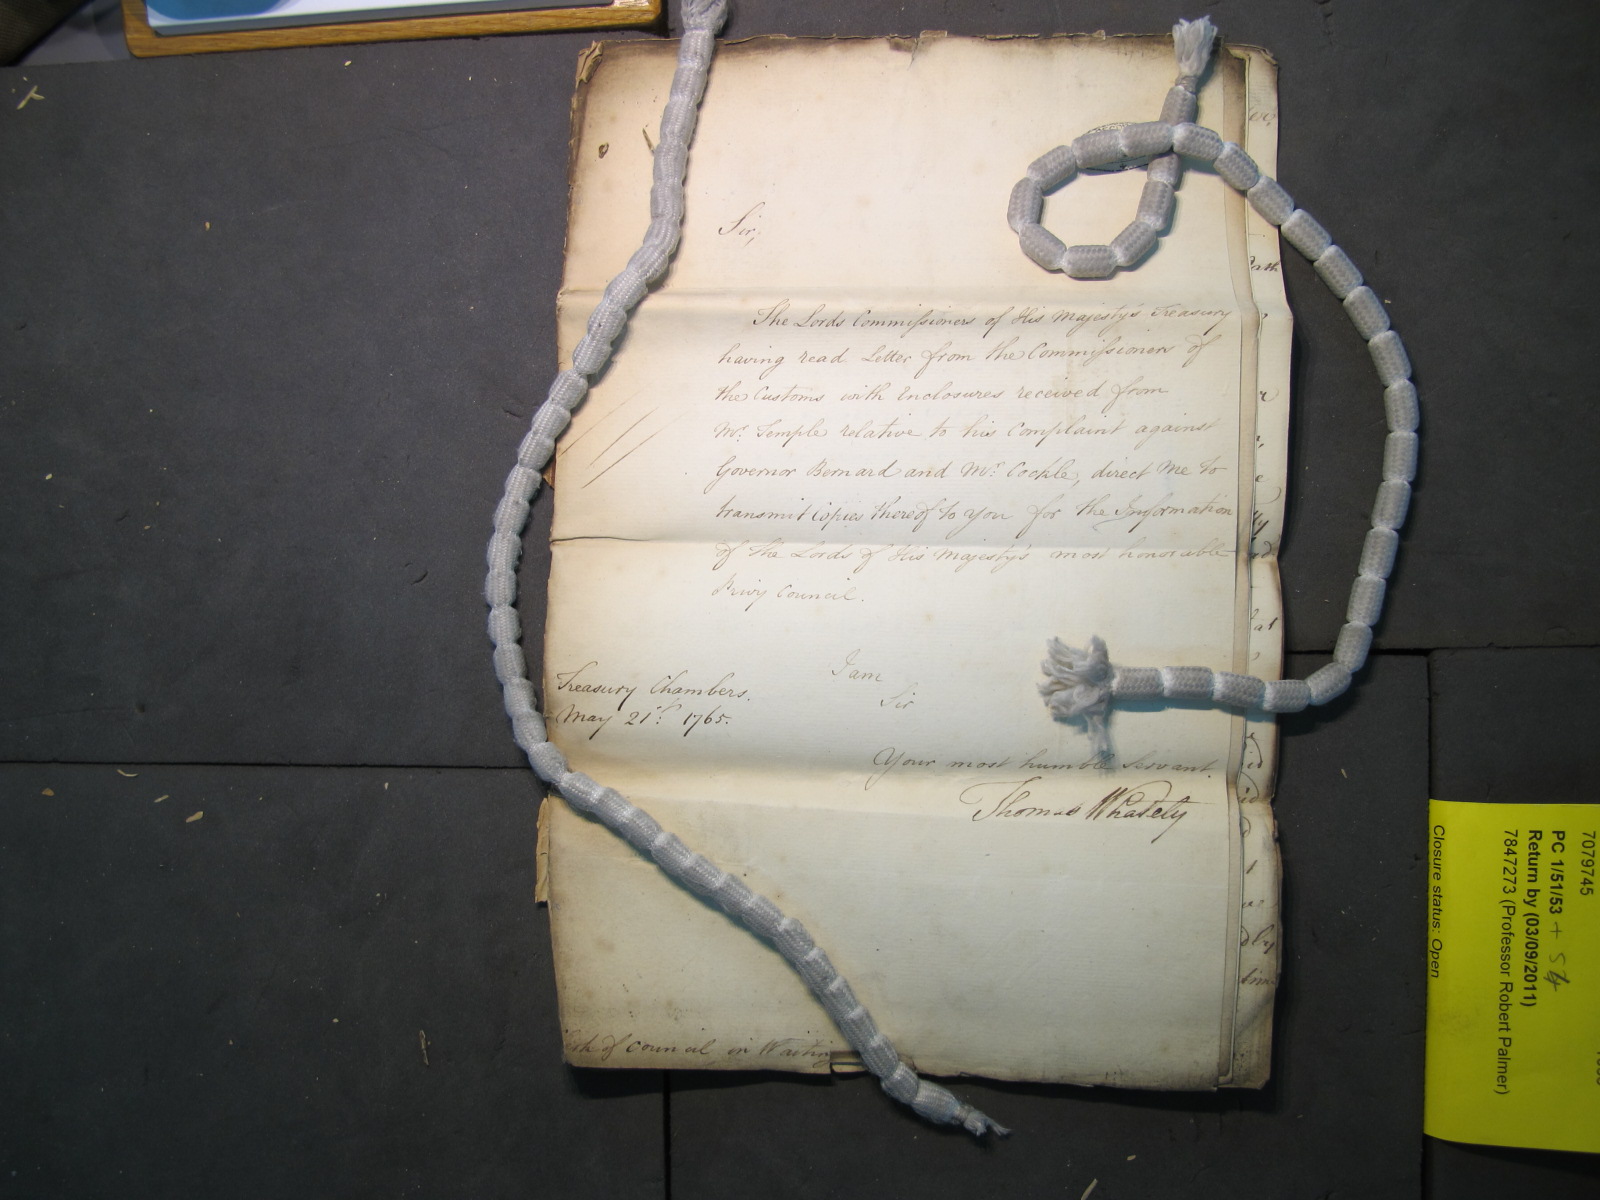 Sir,
The Lords Commissioners of His Majesty's Treasury
having read Letter from the Commissioners of
the Customs with Enclosures received from
Mr. Temple relative to his Complaint against
Governor Bernard and Mr. Cockle, direct Me to
transmit Copies thereof to You for the Information
of the Lords of His Majesty's most honorable
Privy Council.
I am
Sir
Treasury Chambers.
May 21st. 1765.
Your most humble Servant.
Thomas Whately
Clerk of Council in Waiting
7079745
PC 1/51/53 + 54
Return by (03/09/2011)
7847273 (Professor Robert Palmer)
Closure status: Open